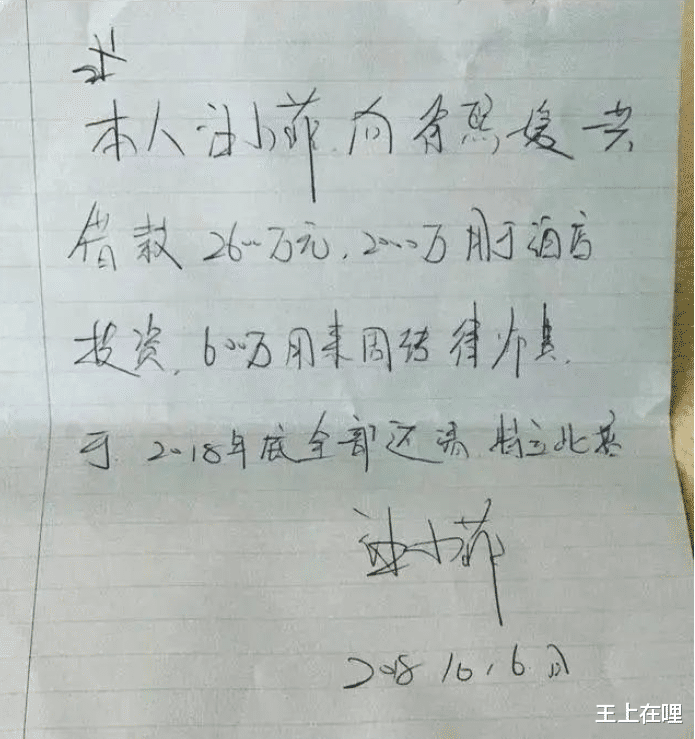 本人汪小菲向徐熙媛共
借款2600万元,2000万用于酒店
投资,600万用来周转律师费,
于2018年底全部还清 特立此篆
汪小菲
2018.10,6.日
王上在哩